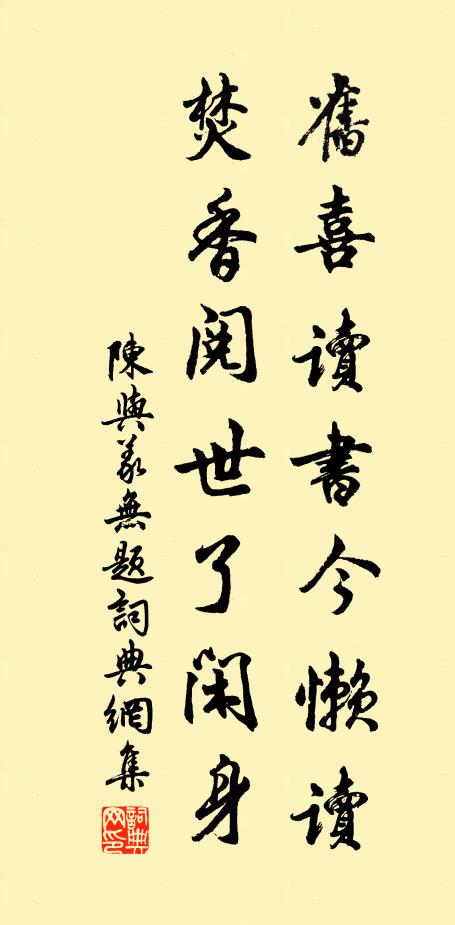 舊喜讀書今懶讀
焚香閱世了閑身
陳與義無題詞典網集
詞典网印